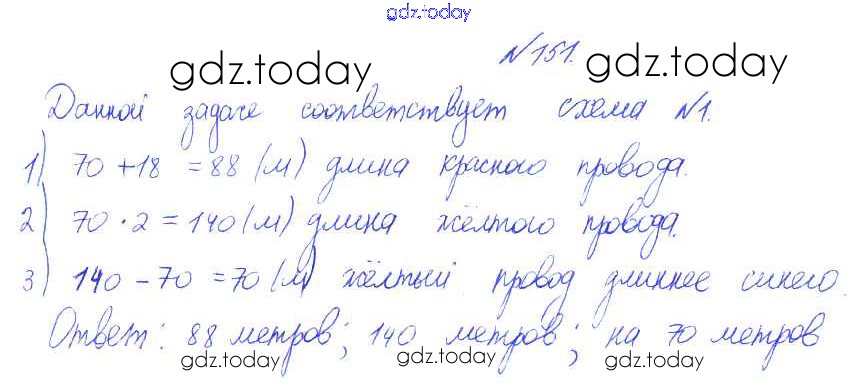 gdz.today
№151.
gdz.today gdz.today
Данной задаче соответствует схема №1.
1) 70 + 18 = 88 (м) длина красного провода.
2) 70 · 2 = 140 (м) длина жёлтого провода.
3) 140 - 70 = 70 (м) жёлтый провод длиннее синего.
Ответ: 88 метров; 140 метров; на 70 метров
gdz.today gdz.today gdz.today